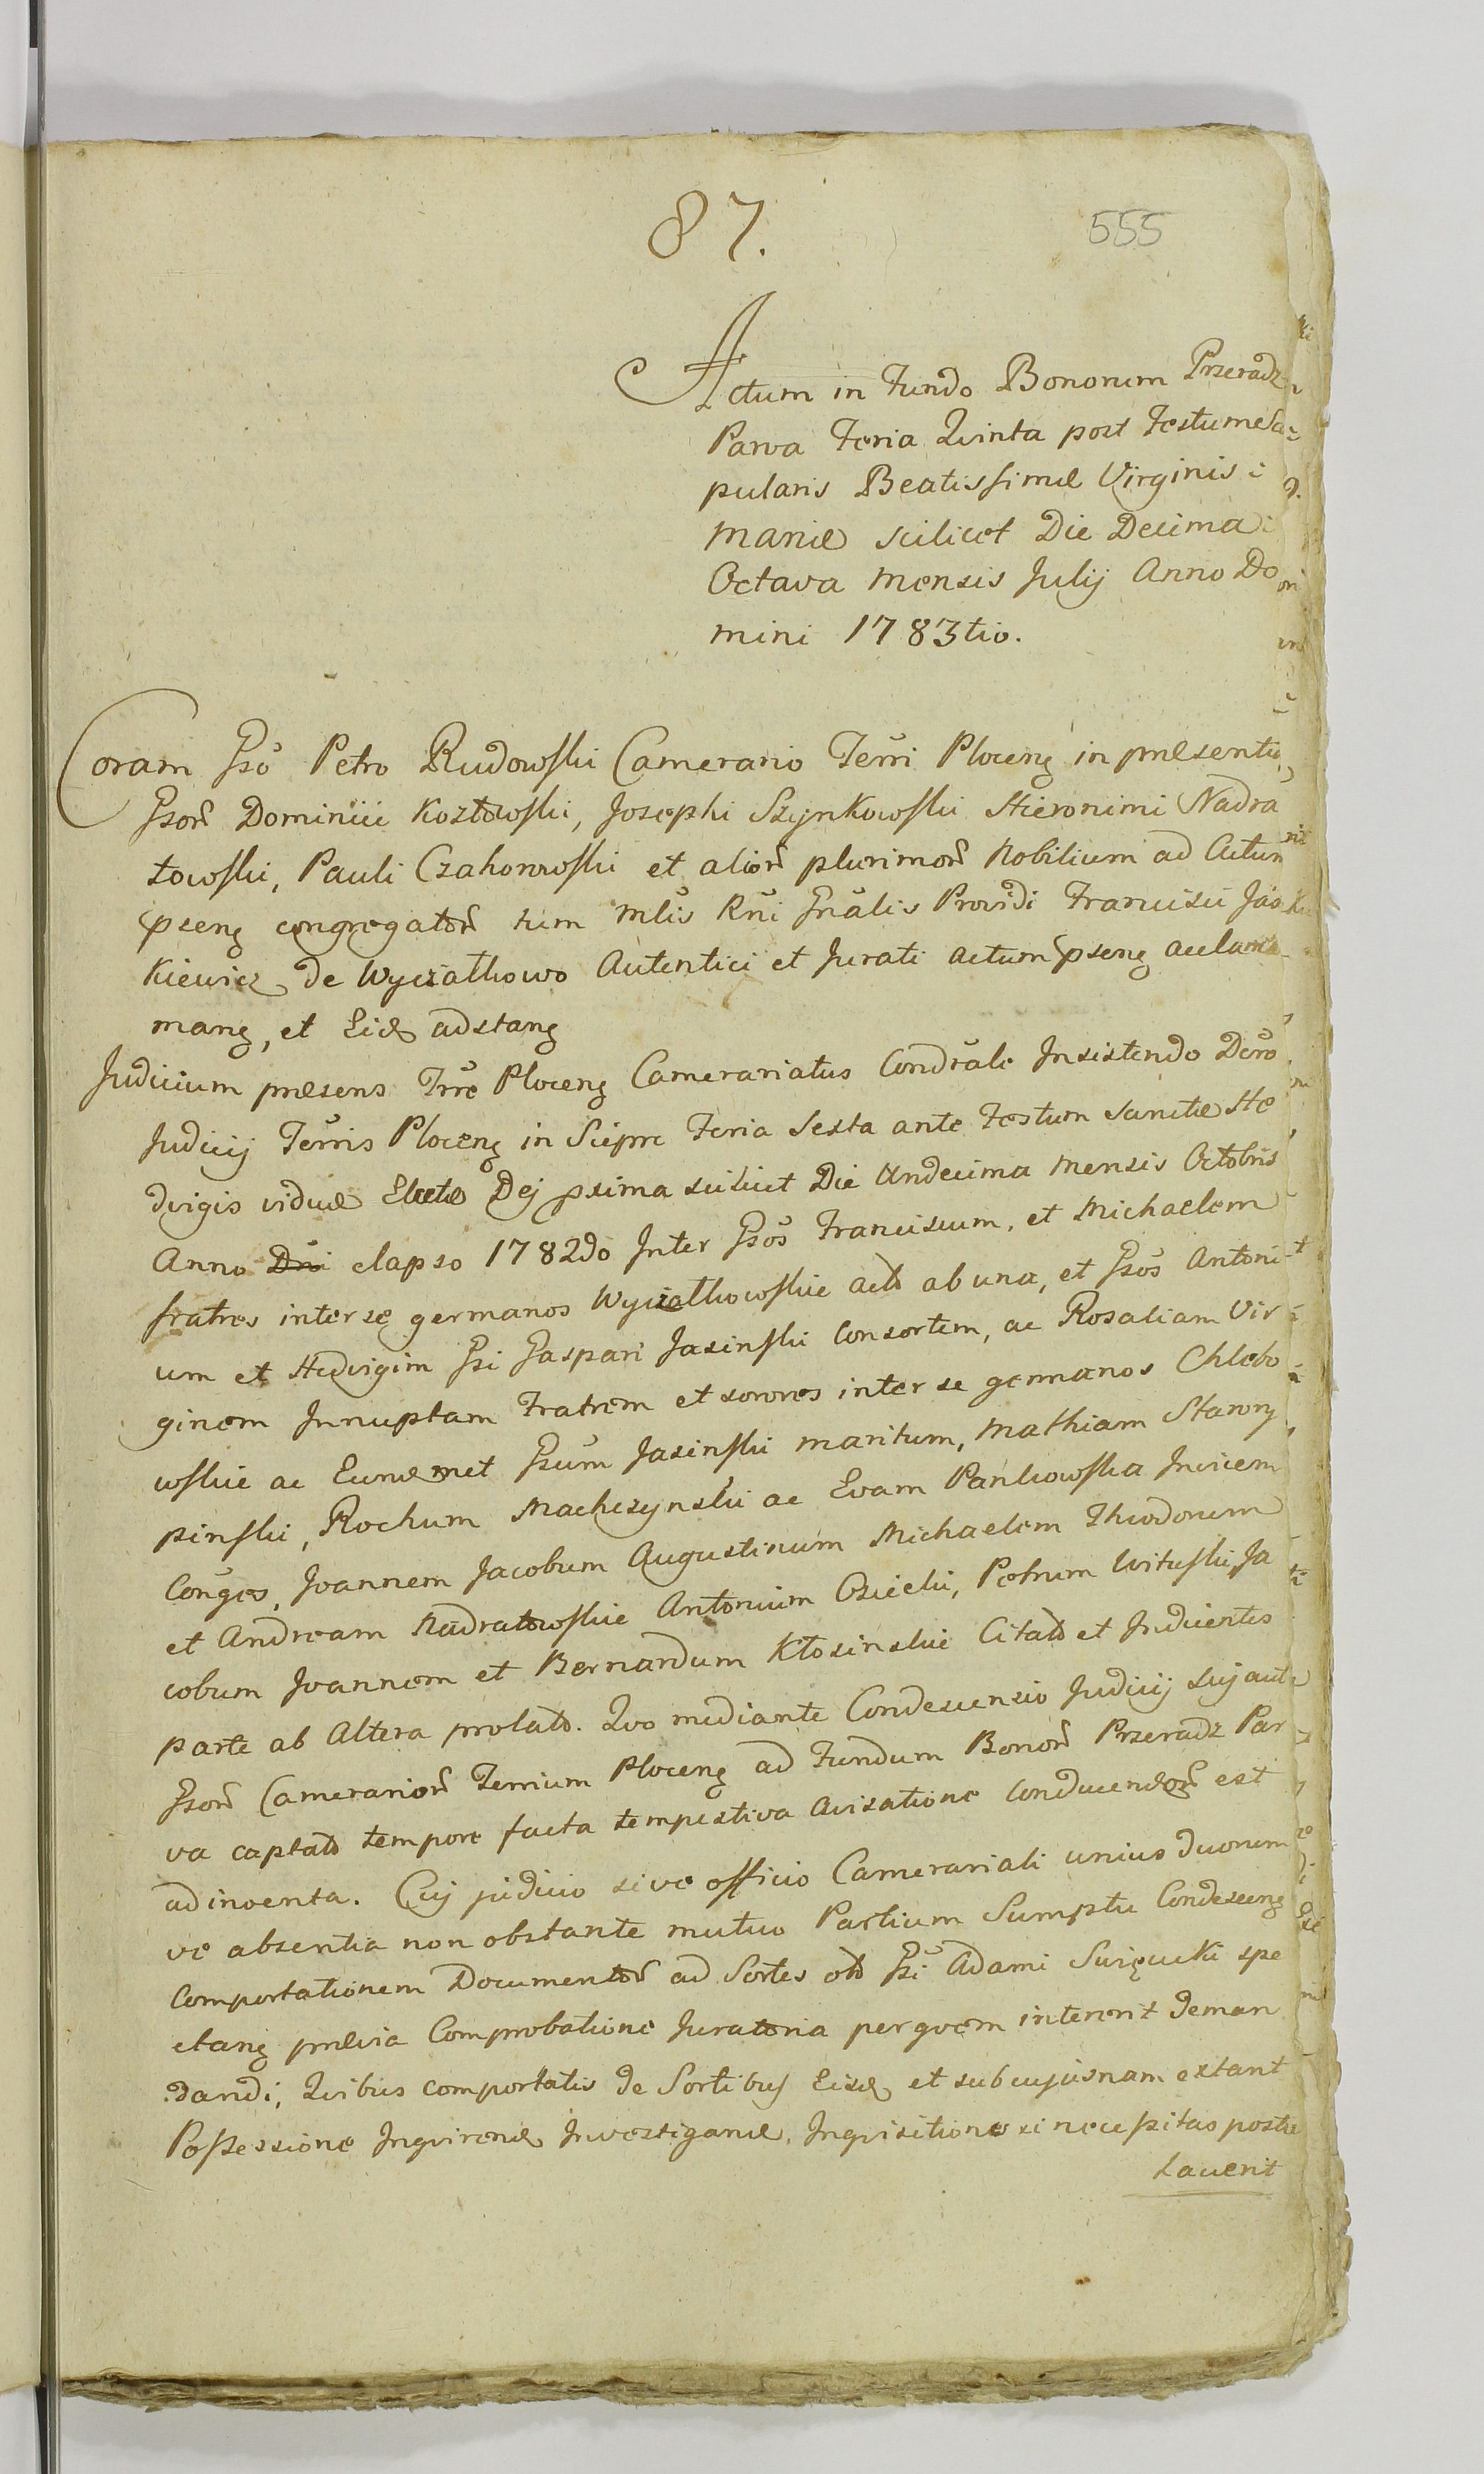 87.
555
Actum in Fundo Bonorum Przeradz
Parva Feria Qvinta post Festum Sca=
pularis Beatissimæ Virginis
Mariæ scilicet Die Decima
Octava Mensis Julij Anno Do
mini 1783tio.
Coram Gso Petro Rudowski Camerario Terri Plocens in præsentia
Gsorũ Dominici Kozłowski, Josephi Szynkowski Hieronimi Nadra
towski, Pauli Czahorowski et aliorũ plurimorũ Nobilium ad Actum
psens congregatorũ tum Mlis Rñi Gñalis Providi Francisci Jas
kiewicz de Wyciałkowo Autentici et Jurati actum psens acclam
mans, et Eid adstans
Judicium præsens Trre Plocens Camerariatus Condrale Insistendo Dcro
Judicij Terris Plocens in Scipre Feria Sexta ante Festum Sanctæ He
dvigis viduæ Electæ Dej psima scilicet Die Undecima Mensis Octobris
Anno Dni elapso 1782do Inter Gsos Franciscum, et Michaelem
fratres inter se germanos Wyciałkowskie acto ab una, et Gsos Antoni
um et Hedvigim Gsi Gaspari Jasinski Consortem, ac Rosaliam Vir
ginem Innuptam Fratrem et sorores inter se germanos Chlebo
wskie ac Eundemet Gsum Jasinski maritum, Mathiam Starory
pinski, Rochum Machczynski ac Evam Pankowska Invicem
Conges, Joannem Jacobum Augustinum Michaelem Theodorum
et Andream Nadratowskie Antonium Osiecki, Petrum Wituski, Ja
cobum Joannem et Bernardum Kłosinskie Citato et Inducentes
parte ab Altera prolato. Qvo mediante Condescensio Judicij sui aut
Gsorũ Camerariorũ Terrium Plocens ad Fundum Bonorũ Przeradz Par
va captato tempore facta tempestiva avisatione conducendorũ est
adinventa. Cuj judicio sive officio Camerariali unius duorum
ve absentia non obstante mutuo Partium Sumptu Condescens
Comportationem Documentorũ ad Sortes olo Gsi Adami Swięcicki spe
ctans prævia Comprobatione Juratoria per qvem intererit deman
dandi, Qvibus comportatis de Sortibus Eisd et sub cujusnam extant
Possessione Inqvirend Investigand. Inqvisitione si necessitas postu
laverit